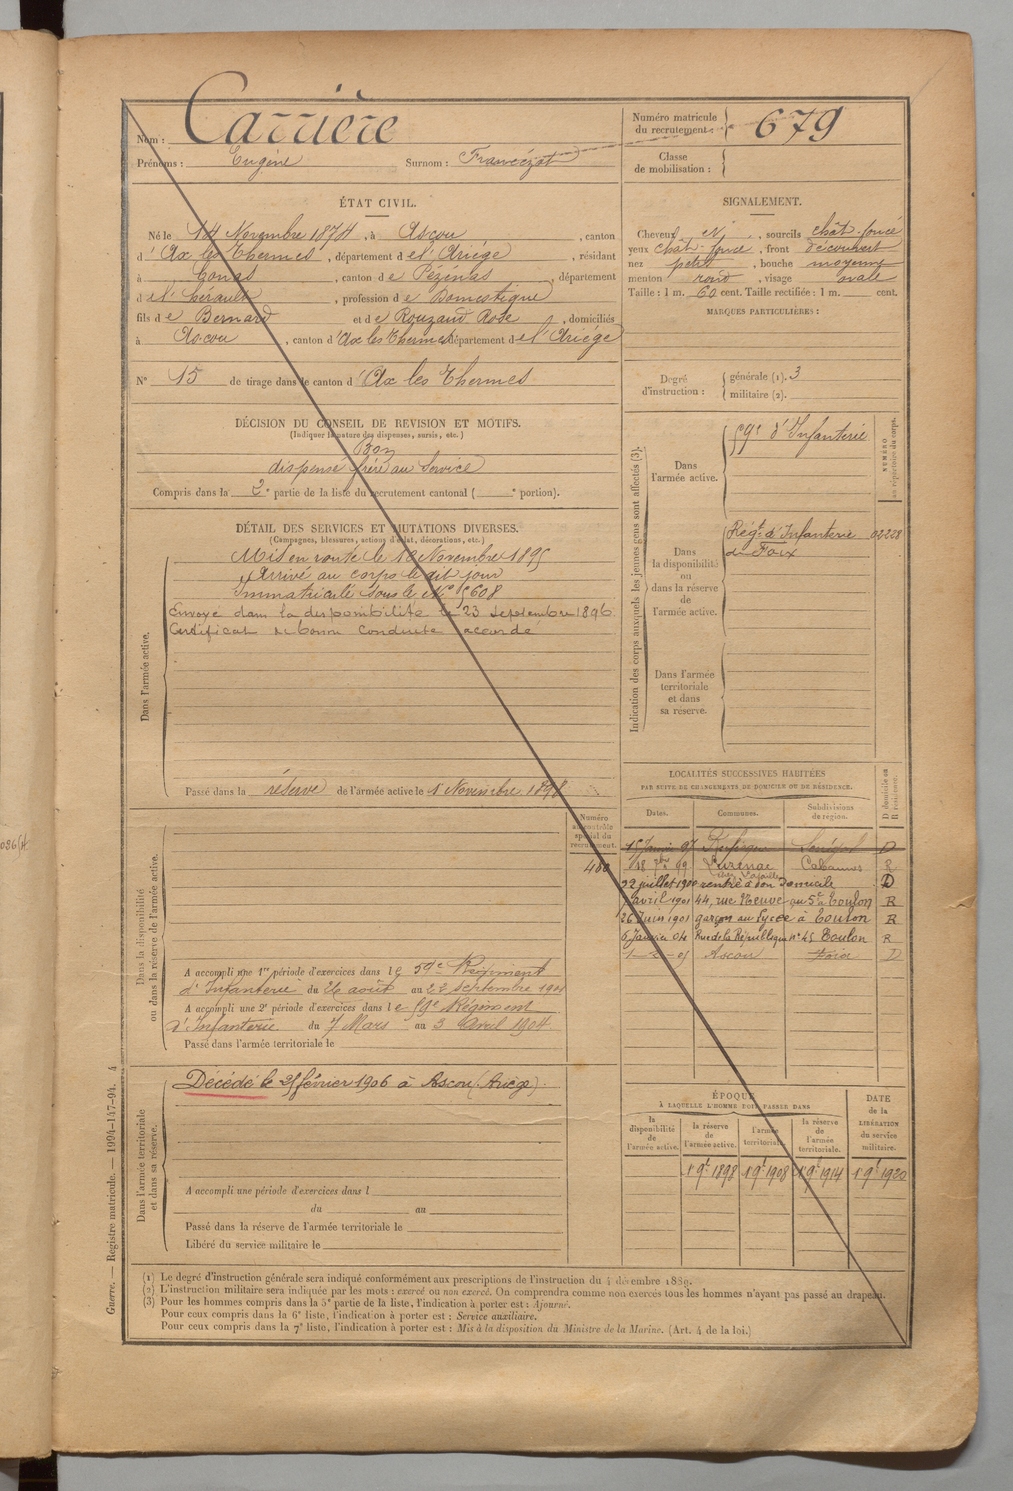 Nom : Carrière
Prénoms : Eugène Surnom : Francézot
Numéro matricule du recrutement : 679
Classe de mobilisation :
ÉTAT CIVIL.
Né le 14 Novembre 1874, à Ascou, canton
d'Ax les Thermes, département de l'Ariège, résidant
à Conas, canton de Pézénas, département
de l'Hérault, profession de Domestique
fils de Bernard et de Rouzaud Rose, domiciliés
à Ascou, canton d'Ax les Thermes département de l'Ariège
N° 15 de tirage dans le canton d'Ax les Thermes
SIGNALEMENT.
Cheveux et, sourcils chât-foncé
yeux chât-foncé, front découvert
nez petit, bouche moyenne
menton rond, visage ovale
Taille : 1 m. 60 cent. Taille rectifiée : 1 m. cent.
MARQUES PARTICULIÈRES :
Degré d'instruction : générale (1). 3
militaire (2).
DÉCISION DU CONSEIL DE REVISION ET MOTIFS.
(Indiquer la nature des dispenses, sursis, etc.)
Bon
dispensé frère au Service
Compris dans la 2e partie de la liste du recrutement cantonal ( e portion).
DÉTAIL DES SERVICES ET MUTATIONS DIVERSES.
(Campagnes, blessures, actions d'éclat, décorations, etc.)
Dans l'armée active.
Mis en route le 16 Novembre 1895
Arrivé au corps le dit jour
Immatriculé sous le N° 5608
Envoyé dans la disponibilité le 23 Septembre 1896
Certificat de bonne Conduite accordé
Passé dans la réserve de l'armée active le 1 Novembre 1898
Indication des corps auxquels les jeunes gens sont affectés (3).
NUMÉRO au répertoire du corps.
Dans l'armée active.
59e d'Infanterie
Dans la disponibilité ou dans la réserve de l'armée active.
Régt d'Infanterie 02228
de Foix
Dans l'armée territoriale et dans sa réserve.
LOCALITÉS SUCCESSIVES HABITÉES
PAR SUITE DE CHANGEMENTS DE DOMICILE OU DE RÉSIDENCE.
Dates. Communes. Subdivisions de région. D domicile ou R résidence.
15 Janvier 97 Rufisque Sénégal D
18 7bre 99 Luzenac Cabannes R
22 juillet 1900 rentré à son Domicile D
avril 1901 44, rue Neuve Toulon R
26 Juin 1901 garçon au Lycée à Toulon R
6 Janvier 04 Rue de la République n° 45 Toulon R
Ascou Foix D
Dans la disponibilité ou dans la réserve de l'armée active.
Numéro au contrôle spécial du recrutement.
460
A accompli une 1re période d'exercices dans le 59e Régiment
d'Infanterie du 26 août au 22 Septembre 1901
A accompli une 2e période d'exercices dans le 59e Régiment
d'Infanterie du 7 Mars au 3 Avril 1904
Passé dans l'armée territoriale le
Dans l'armée territoriale et dans sa réserve.
Décédé le février 1906 à Ascou (Ariège)
A accompli une période d'exercices dans l
du au
Passé dans la réserve de l'armée territoriale le
Libéré du service militaire le
ÉPOQUE
À LAQUELLE L'HOMME DOIT PASSER DANS
la disponibilité de l'armée active. la réserve de l'armée active. l'armée territoriale. la réserve de l'armée territoriale. DATE de la LIBÉRATION du service militaire.
1 9t 1898 1 9t 1908 1 9t 1914 1 9t 1920
(1) Le degré d'instruction générale sera indiqué conformément aux prescriptions de l'instruction du 4 décembre 1889.
(2) L'instruction militaire sera indiquée par les mots : exercé ou non exercé. On comprendra comme non exercés tous les hommes n'ayant pas passé au drapeau.
(3) Pour les hommes compris dans la 5e partie de la liste, l'indication à porter est : Ajourné.
Pour ceux compris dans la 6e liste, l'indication à porter est : Service auxiliaire.
Pour ceux compris dans la 7e liste, l'indication à porter est : Mis à la disposition du Ministre de la Marine. (Art. 4 de la loi.)
Guerre. — Registre matricule. — 1994-147-94. 4